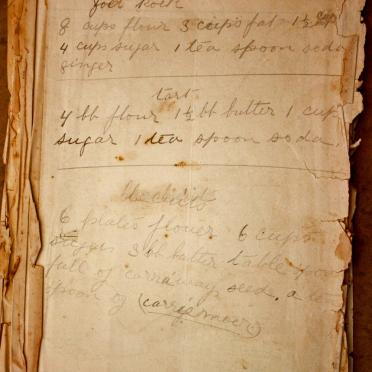 8 cups flour 3 cups fat 1½
4 cups sugar 1 tea spoon soda
ginger
tart
4 lbb flour 1½ bb butter 1 cup
sugar 1 tea spoon soda.
6 plates flower 6 cups
3 bb butter table spoon
full of carraway seeds. a tea
spoon of